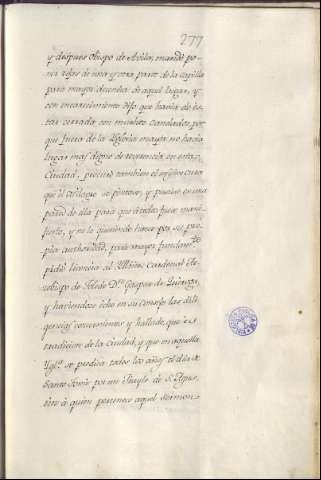 277
y despues Obispo de Avila, mandó po-
ner rejas de una y otra parte de la capilla
para mayor decencia de aquel lugar, y
con encarecimiento dijo que havia de es-
tar cerrada con muchos candados, por
que fuera de la Yglesia mayor no havia
lugar mas digno de reverencia en esta
Ciudad, procuró tambien el mismo cura
que el se pintase, y pusiese en una
pared de ella para que á todos fuese mani-
fiesto, y no lo queriendo hacer por su pro-
pia authoridad, para mayor fundam.to
pidió licencia al Cardenal Arz-
obispo de Toledo D.n Gaspar de Quiroga,
y haviendose echo en su consejo las dili-
gencias convenientes y hallado, que era
tradicion de la Ciudad, y que en aquella
Ygl.a se predica todos los años el dia de
Santa por un frayle de S. Agus-
tin á quien pertenece aquel sermon